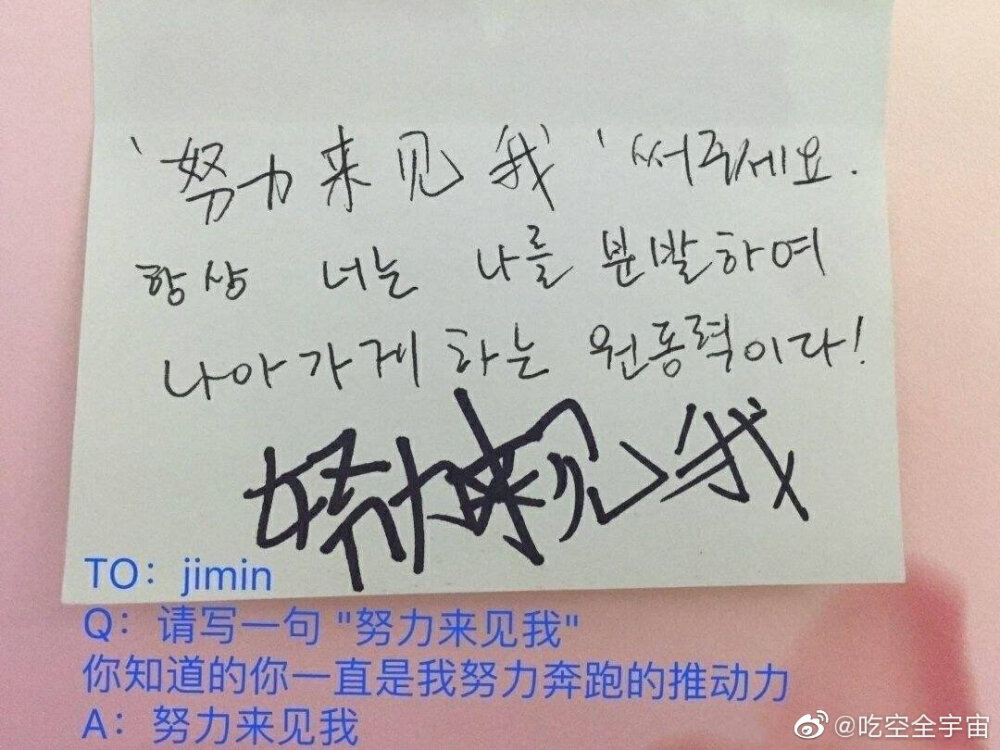 '努力来见我' 써주세요.
항상 너는 나를 분발하여
나아가게 하는 원동력이다!
努力来见我
TO：jimin
Q：请写一句 "努力来见我"
你知道的你一直是我努力奔跑的推动力
A：努力来见我
@吃空全宇宙